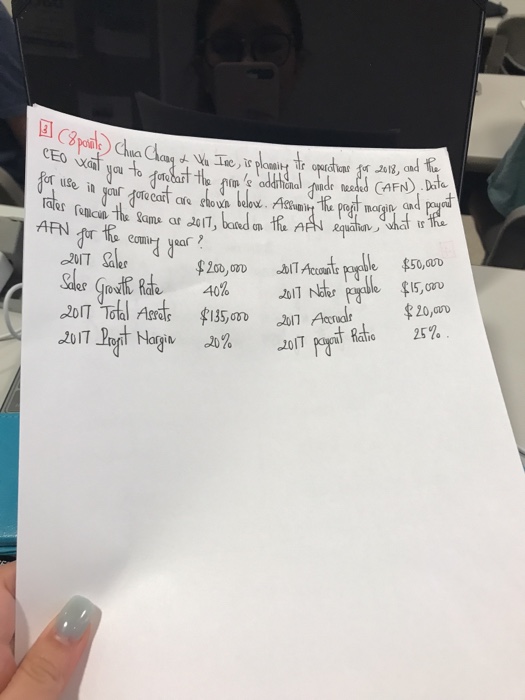 3 (8 points) Chua Chang & Wu Inc, is planning its operations for 2018, and the
CEO want you to forecast the firm's additional funds needed (AFN). Data
for use in your forecast are shown below. Assuming the profit margin and payout
rates remain the same as 2017, based on the AFN equation, what is the
AFN for the coming year?
2017 Sales $200,000 2017 Accounts payable $50,000
Sales Growth Rate 40% 2017 Notes payable $15,000
2017 Total Assets $135,000 2017 Accruals $20,000
2017 Profit Margin 20% 2017 payout Ratio 25%.